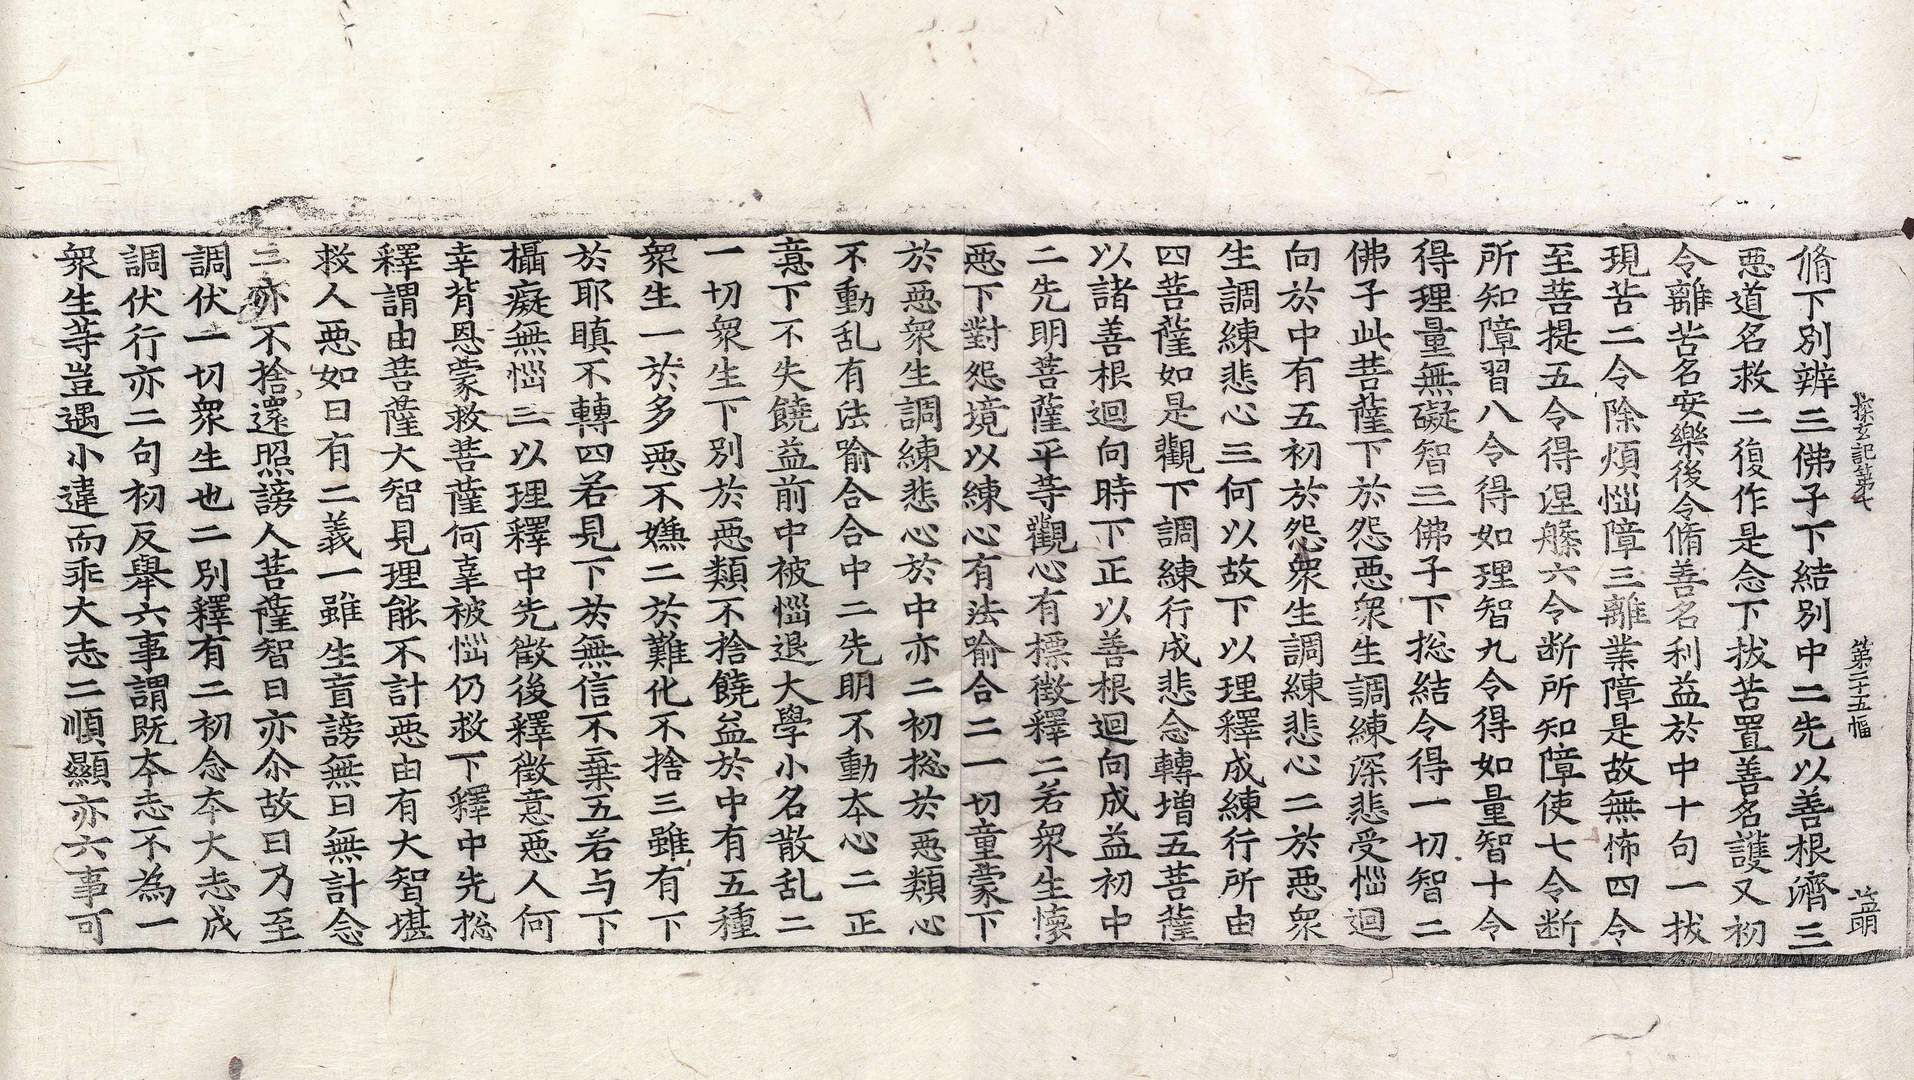 探玄記第七　第二十五幅　㘴明
脩下別辨三佛子下結別中二先以善根濟三
惡道名救二復作是念下拔苦置善名護又初
令離苦名安樂後令脩善名利益於中十句一拔
現苦二令除煩惱障三離業障是故無怖四令
至菩提五令得涅槃六令断所知障使七令断
所知障習八令得如理智九令得如量智十令
得理量無礙智三佛子下揔結令得一切智二
佛子此菩薩下於怨惡衆生調練深悲受惱迴
向於中有五初於怨衆生調練悲心二於惡衆
生調練悲心三何以故下以理釋成練行所由
四菩薩如是觀下調練行成悲念轉增五菩薩
以諸善根迴向時下正以善根迴向成益初中
二先明菩薩平等觀心有標徵釋二若衆生懷
惡下對怨境以練心有法喻合二一切童蒙下
於惡衆生調練悲心於中亦二初揔於惡類心
不動乱有法喻合合中二先明不動本心二正
意下不失饒益前中被惱退大學小名散乱二
一切衆生下別於惡類不捨饒益於中有五種
衆生一於多惡不嫌二於難化不捨三雖有下
於耶瞋不轉四若見下於無信不棄五若与下
攝癡無惱三以理釋中先徵後釋徵意惡人何
幸背恩蒙救菩薩何辜被惱仍救下釋中先揔
釋謂由菩薩大智見理能不計惡由有大智堪
救人惡如日有二義一雖生盲謗無日無計念
三亦不捨還照謗人菩薩智日亦尒故曰乃至
調伏一切衆生也二別釋有二初念本大志成
調伏行亦二句初反舉六事謂既本志不為一
衆生等豈遇小違而乖大志二順顯亦六事可